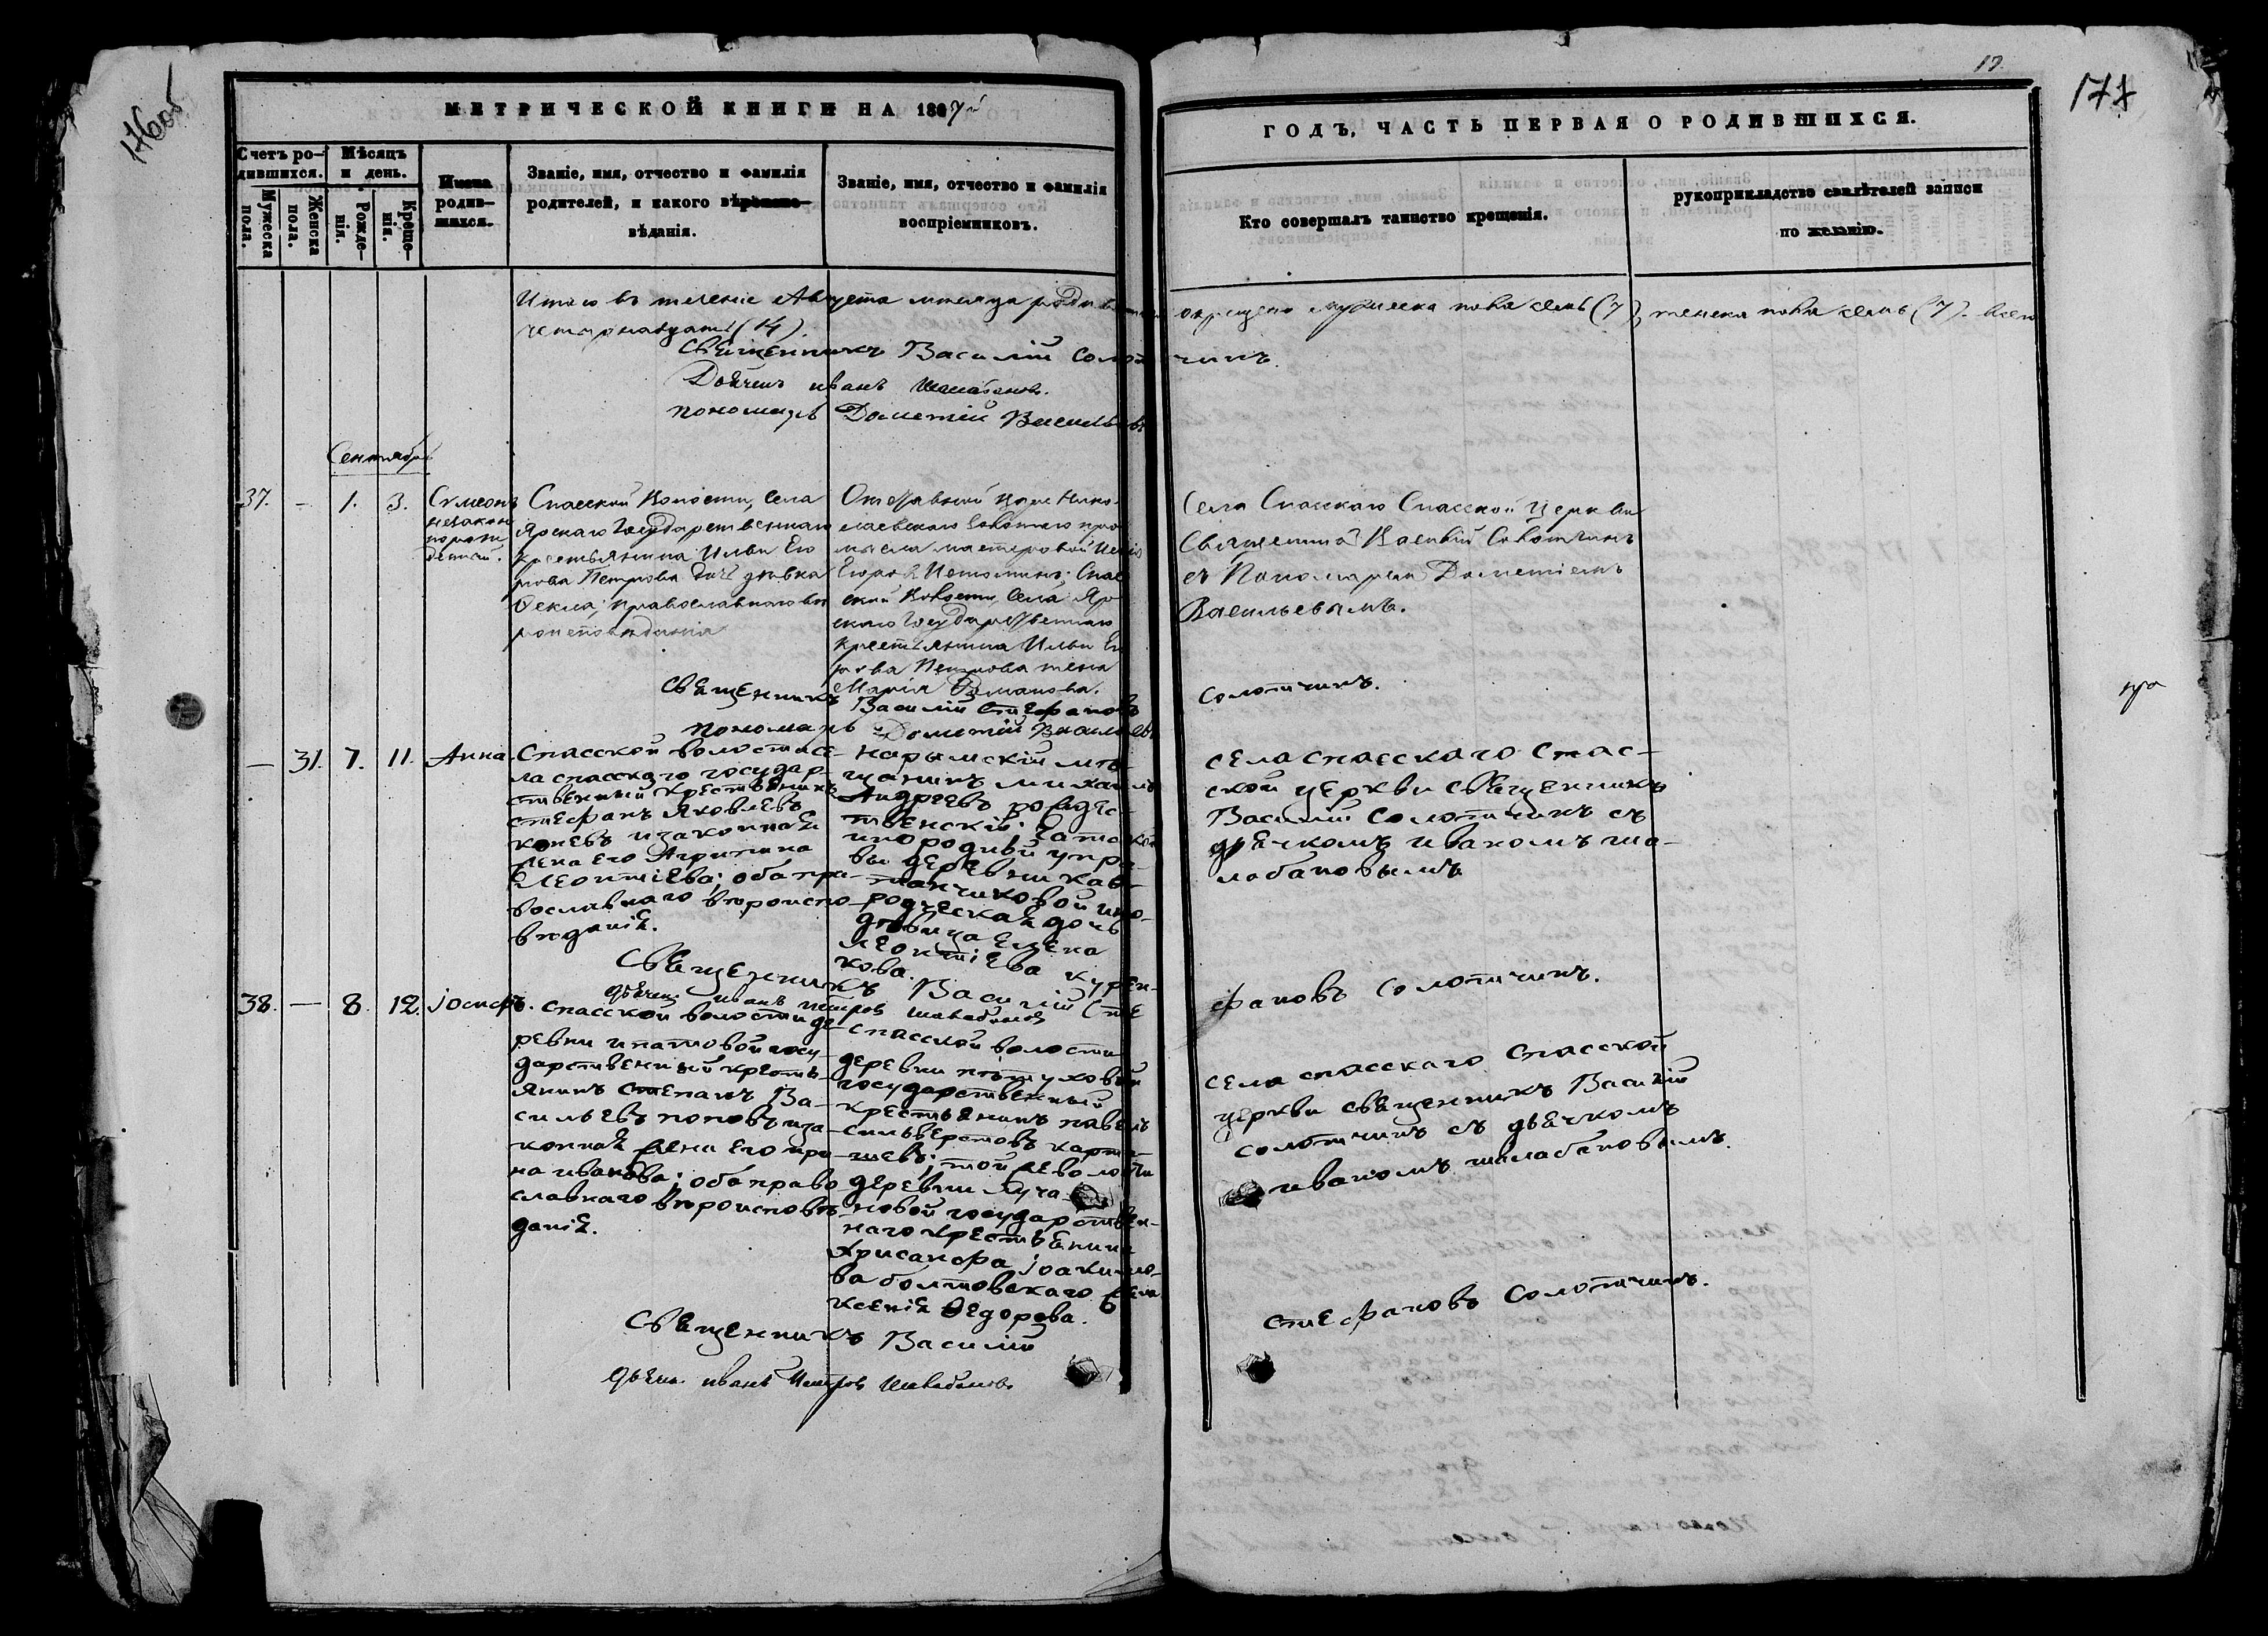 176об
МЕТРИЧЕСКОЙ КНИГИ НА 1867й
Счетъ ро-
дившихся.
Мужеска
пола.
Женска
пола.
Мѣсяцъ
и день.
Рожде-
нія.
Креще-
нія.
Имена
родив-
шихся.
Званіе, имя, отчество и фамилія
родителей, и какого вѣроиспо-
вѣданія.
Званіе, имя, отчество и фамилія
воспріемниковъ.
Итого въ теченіе Августа мѣсяца
четырнадцать (14).
Священникъ Василій Солот
Дьячекъ иванъ Шалабановъ.
пономарь Дометій Васильевъ
Сентябрь
37. - 1. 3. Сѵмеонъ
незаконн
порож
денный.
Спасской Волости, Села
Ярскаго Государственнаго
крестьянина Ильи Его
рова Петрова дочь дѣвка
Ѳекла; православнаго вѣ
роисповѣданія
Отставной Нико-
лаевскаго про
мысла мастеровой
Егоровъ Спас
ской Волости, Села Яр
скаго Государственнаго
крестьянина Ильи Ег
рова Петрова жена
Марія Романова.
Священникъ Василій Стефановъ
пономарь Дометій Васильевъ
— 31. 7. 11. Анна.
Спасской волости се-
ла спасскаго государ-
ственный крестьянинъ
стефанъ Яковлевъ
коневъ и законная
жена его Агрипина
Леонтіева; оба пра-
вославнаго вѣроиспо-
вѣданія.
нарымскій мѣ-
щанинъ михаилъ
Андреевъ рождес-
твенскій;
инородной упра-
вы деревни кав-
танчиковой ино-
родческая дочь
дѣвица Елена
леонтіева курен-
кова.
Священникъ Василій Сте
дьячекъ иванъ петровъ шалабановъ
38. — 8. 12. іосифъ.
Спасской волости де-
ревни ипатовой госу-
дарственный кресть-
янинъ степанъ Ва-
сильевъ поповъ и за-
конная жена его ири-
на иванова; оба право
славнаго вѣроисповѣ
данія.
спасской волости
деревни пѣтуховой
государственный
крестьянинъ павелъ
сильверстовъ карта-
шевъ; той же волости
деревни луча-
новой государствен-
наго крестьянина
хрисанфа іоакимо-
ва болтовскаго жена
ксенія Ѳедорова.
Священникъ Василій
дьячекъ иванъ Петровъ Шалабановъ
17.
177
ГОДЪ, ЧАСТЬ ПЕРВАЯ О РОДИВШИХСЯ.
Кто совершалъ таинство крещенія.
рукоприкладство свидѣтелей записи
по желанію.
окрещено мужеска пола семь (7), женска пола семь (7). всего
чинъ.
Села Спасскаго Спасской Церкви
Священникъ Василій Солотчинъ
съ Пономаремъ Дометіемъ
Васильевымъ.
Солотчинъ.
села спасскаго спас-
ской церкви священникъ
Василій Солотчинъ съ
дьячкомъ иваномъ ша-
лабановымъ
фановъ Солотчинъ.
села спасскаго Спасской
церкви священникъ Василій
солотчинъ съ дьячкомъ
иваномъ шалабановымъ.
стефановъ Солотчинъ.